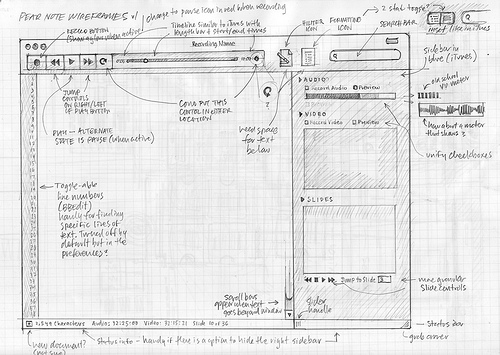 PEAR NOTE WIREFRAMES v1
change to pause icon in red when recording
2 state toggle?
RECORD BUTTON
(show again when active)
Timeline similar to iTunes with
length bar & start/end times
FILTER
ICON
FORMATTING
ICON
SEARCH BAR
inset (like in iTunes)
Recording Name
side bar in
blue (iTunes)
JUMP
CONTROLS
ON RIGHT/LEFT
OF PLAY BUTTON
COULD PUT THIS
CONTROL IN EITHER
LOCATION
PLAY - ALTERNATE
STATE IS PAUSE (when active)
need space
for text
below
?
AUDIO
Record Audio Preview
old school
VU meter
how about a meter
that shows ?
VIDEO
Record Video Preview
unify checkboxes
Toggle-able
line numbers
(BBEdit)
handy for finding
specific lines of
text. Turned off by
default but in the
preferences?
SLIDES
Jump to Slide
more granular
slide controls
scroll bars
appear when text
goes beyond window
slider
handle
2,549 Characters Audio: 32:25:00 Video: 32:15:21 Slide 10 of 36
status bar
grab corner
new document?
(not sure)
status info - handy if there is a option to hide the right sidebar